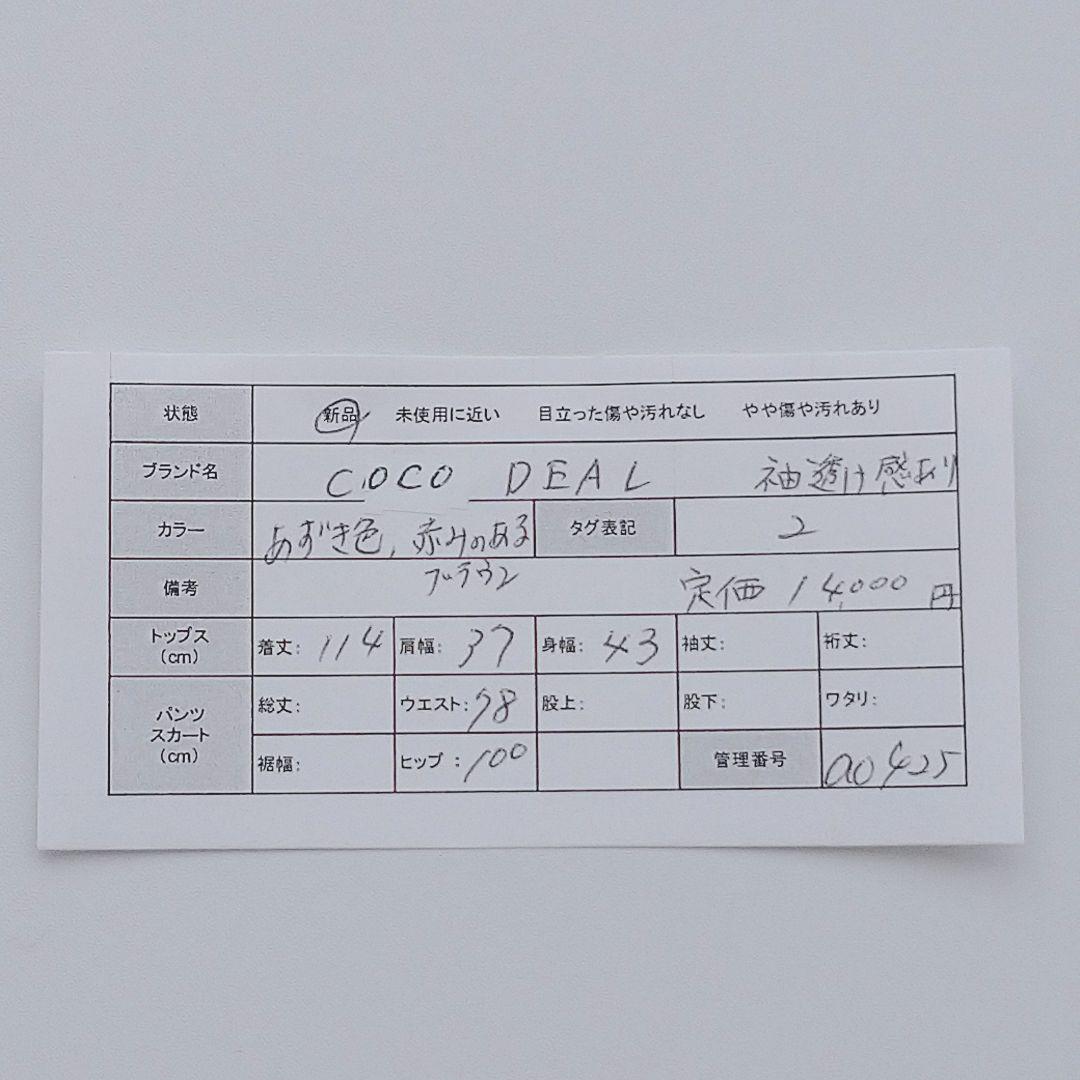 状態 新品 未使用に近い 目立った傷や汚れなし やや傷や汚れあり
ブランド名 COCO DEAL 袖透け感あり
カラー あずき色、赤みのある タグ表記 2
ブラウン
備考 定価 14,000 円
トップス(cm) 着丈: 114 肩幅: 37 身幅: 43 袖丈: 裄丈:
パンツ
スカート
(cm)
総丈: ウエスト: 78 股上: 股下: ワタリ:
裾幅: ヒップ : 100 管理番号 a0425